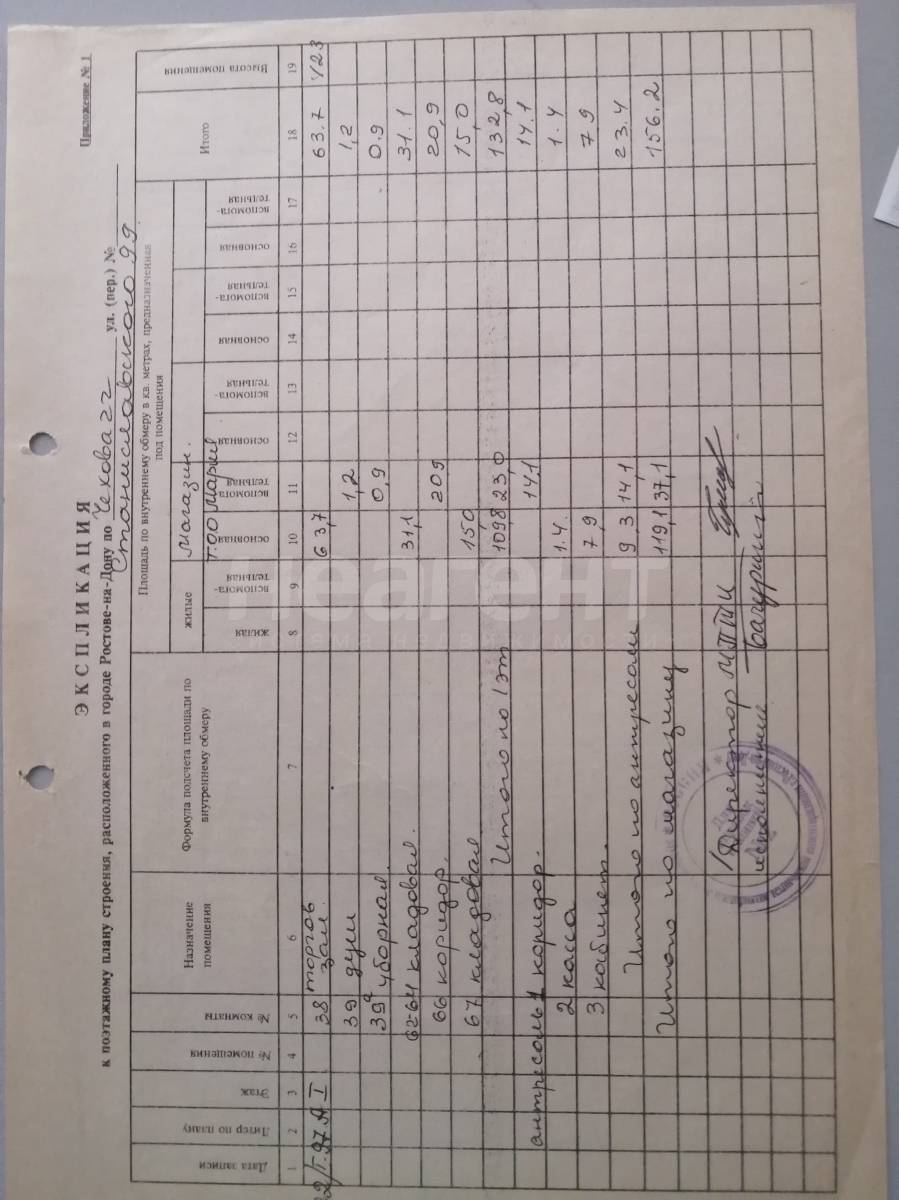 Приложение № 1
ЭКСПЛИКАЦИЯ
к поэтажному плану строения, расположенного в городе Ростове-на-Дону по Чехова 22 ул. (пер.) №
Станиславского 99.
Дата записи
Литер по плану
Этаж
№ помещения
№ комнаты
Назначение помещения
Формула подсчета площади по внутреннему обмеру
Площадь по внутреннему обмеру в кв. метрах, предназначенная под помещения
Итого
Высота помещения
жилые
магазин.
Т.О.О Марш
жилая
вспомога-тельная
основная
вспомога-тельная
основная
вспомога-тельная
основная
вспомога-тельная
основная
вспомога-тельная
1 2 3 4 5 6 7 8 9 10 11 12 13 14 15 16 17 18 19
А I 38 торгов зал. 63,7 63.7 4,23
39 душ 1,2 1,2
39а уборная 0,9 0.9
62-64 кладовая. 31,1 31.1
66 коридор. 20,9 20,9
67 кладовая 15,0 15,0
Итого по 1 эт 109,8 23,0 132,8
антресоль 1 коридор. 14,1 14.1
2 касса 1.4. 1.4
3 кабинет. 7,9 7,9
Итого по антресоли 9,3 14,1 23.4
Итого по магазину 119,1 37,1 156.2
Директор МПТИ
исполнитель
Неагент